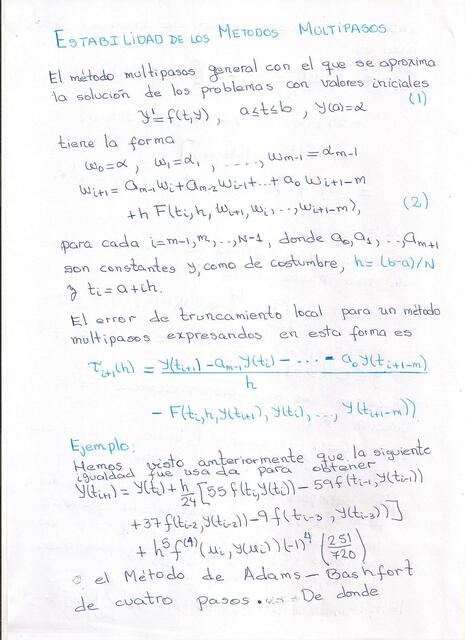 ESTABILIDAD DE LOS METODOS MULTIPASOS
El método multipasos general con el que se aproxima
la solución de los problemas con valores iniciales
y' = f(t,y), a≤t≤b, y(a)=α (1)
tiene la forma
ω₀=α, ω₁=α₁, ...., ωm-1=αm-1
ωi+1 = am-1ωi+am-2ωi-1+...+a₀ωi+1-m
+h F(ti,h,ωi+1,ωi,...,ωi+1-m), (2)
para cada i=m-1,m,...,N-1, donde a₀,a₁,...,am+1
son constantes y, como de costumbre, h=(b-a)/N
y ti=a+ih.
El error de truncamiento local para un método
multipasos expresandos en esta forma es
τi+1(h) = y(ti+1)-am-1y(ti)- ... - a₀y(ti+1-m)
h
- F(ti,h,y(ti+1),y(ti),...,y(ti+1-m))
Ejemplo:
Hemos visto anteriormente que la siguiente
igualdad fue usada para obtener
y(ti+1) = y(ti)+h/24[55f(ti,y(ti))-59f(ti-1,y(ti-1))
+37f(ti-2,y(ti-2))-9f(ti-3,y(ti-3))]
+h⁵f⁽⁴⁾(μi,y(μi))(-1)⁴(251/720)
el Método de Adams-Bashfort
de cuatro pasos. De donde